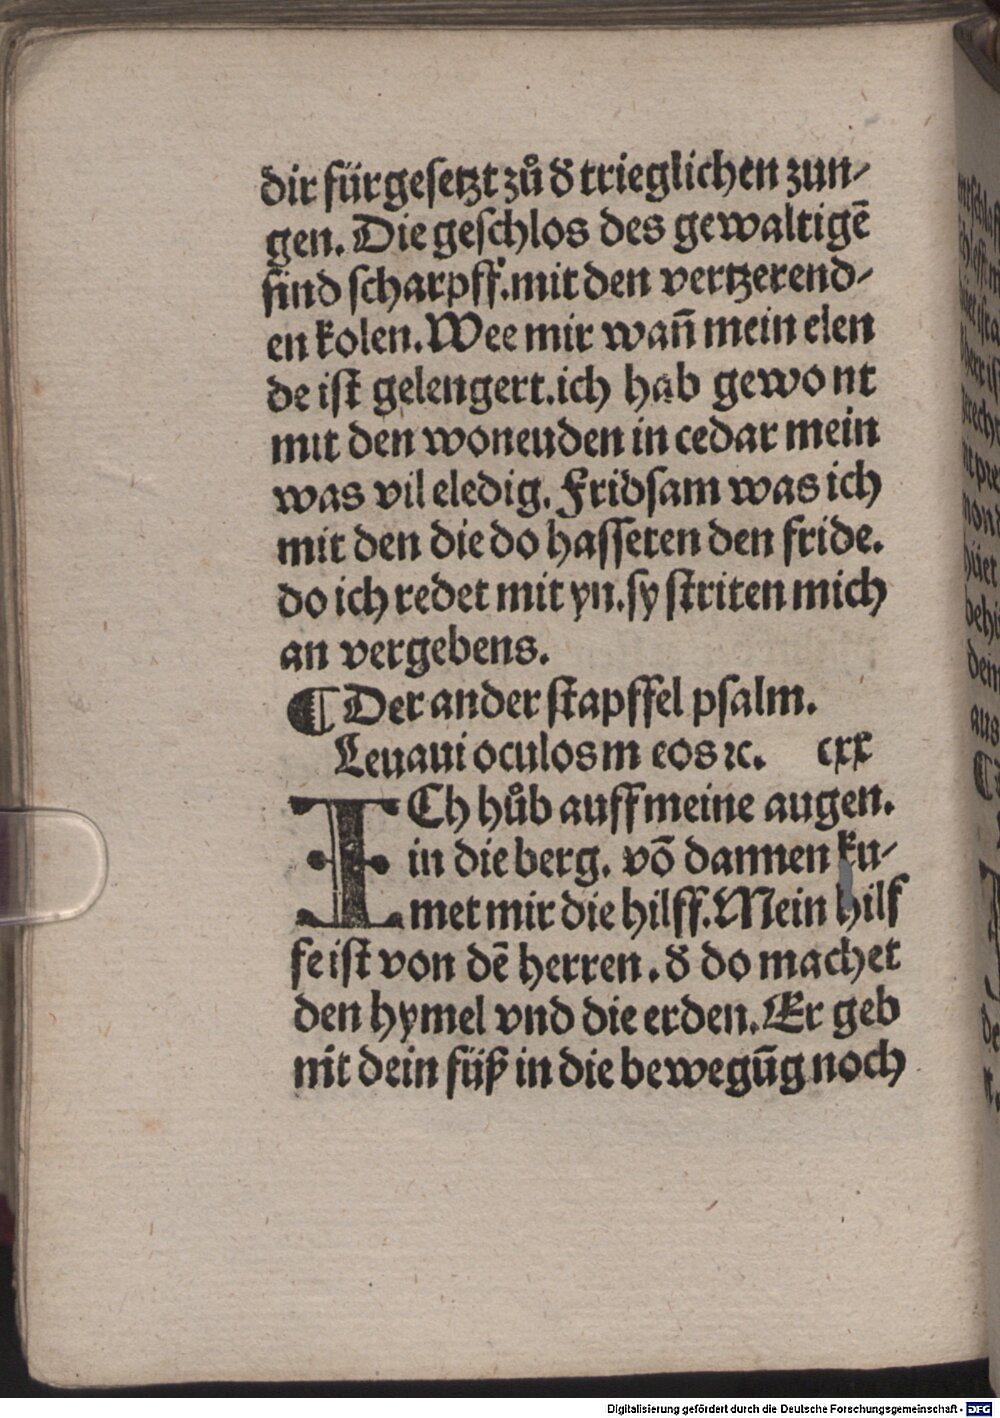 dir fürgesetzt zuͦ đ trieglichen zun⸗
gen. Die geschlos des gewaltigē
sind scharpff. mit den vertzerend⸗
en kolen. Wee mir wañ mein elen
de ist gelengert. ich hab gewont
mit den woneuden in cedar mein
was vil eledig. Fridsam was ich
mit den die do hasseten den fride.
do ich redet mit yn. sy striten mich
an vergebens.
¶ Der ander stapffel psalm.
Leuaui oculos m eos ⁊c. cxx
ICh huͦb auff meine augen.
in die berg. võ dannen ku⸗
met mir die hilff. Mein hilf
fe ist von dē herren. đ do machet
den hymel vnd die erden. Er geb
nit dein füß in die bewegūg noch
Digitalisierung gefördert durch die Deutsche Forschungsgemeinschaft - DFG